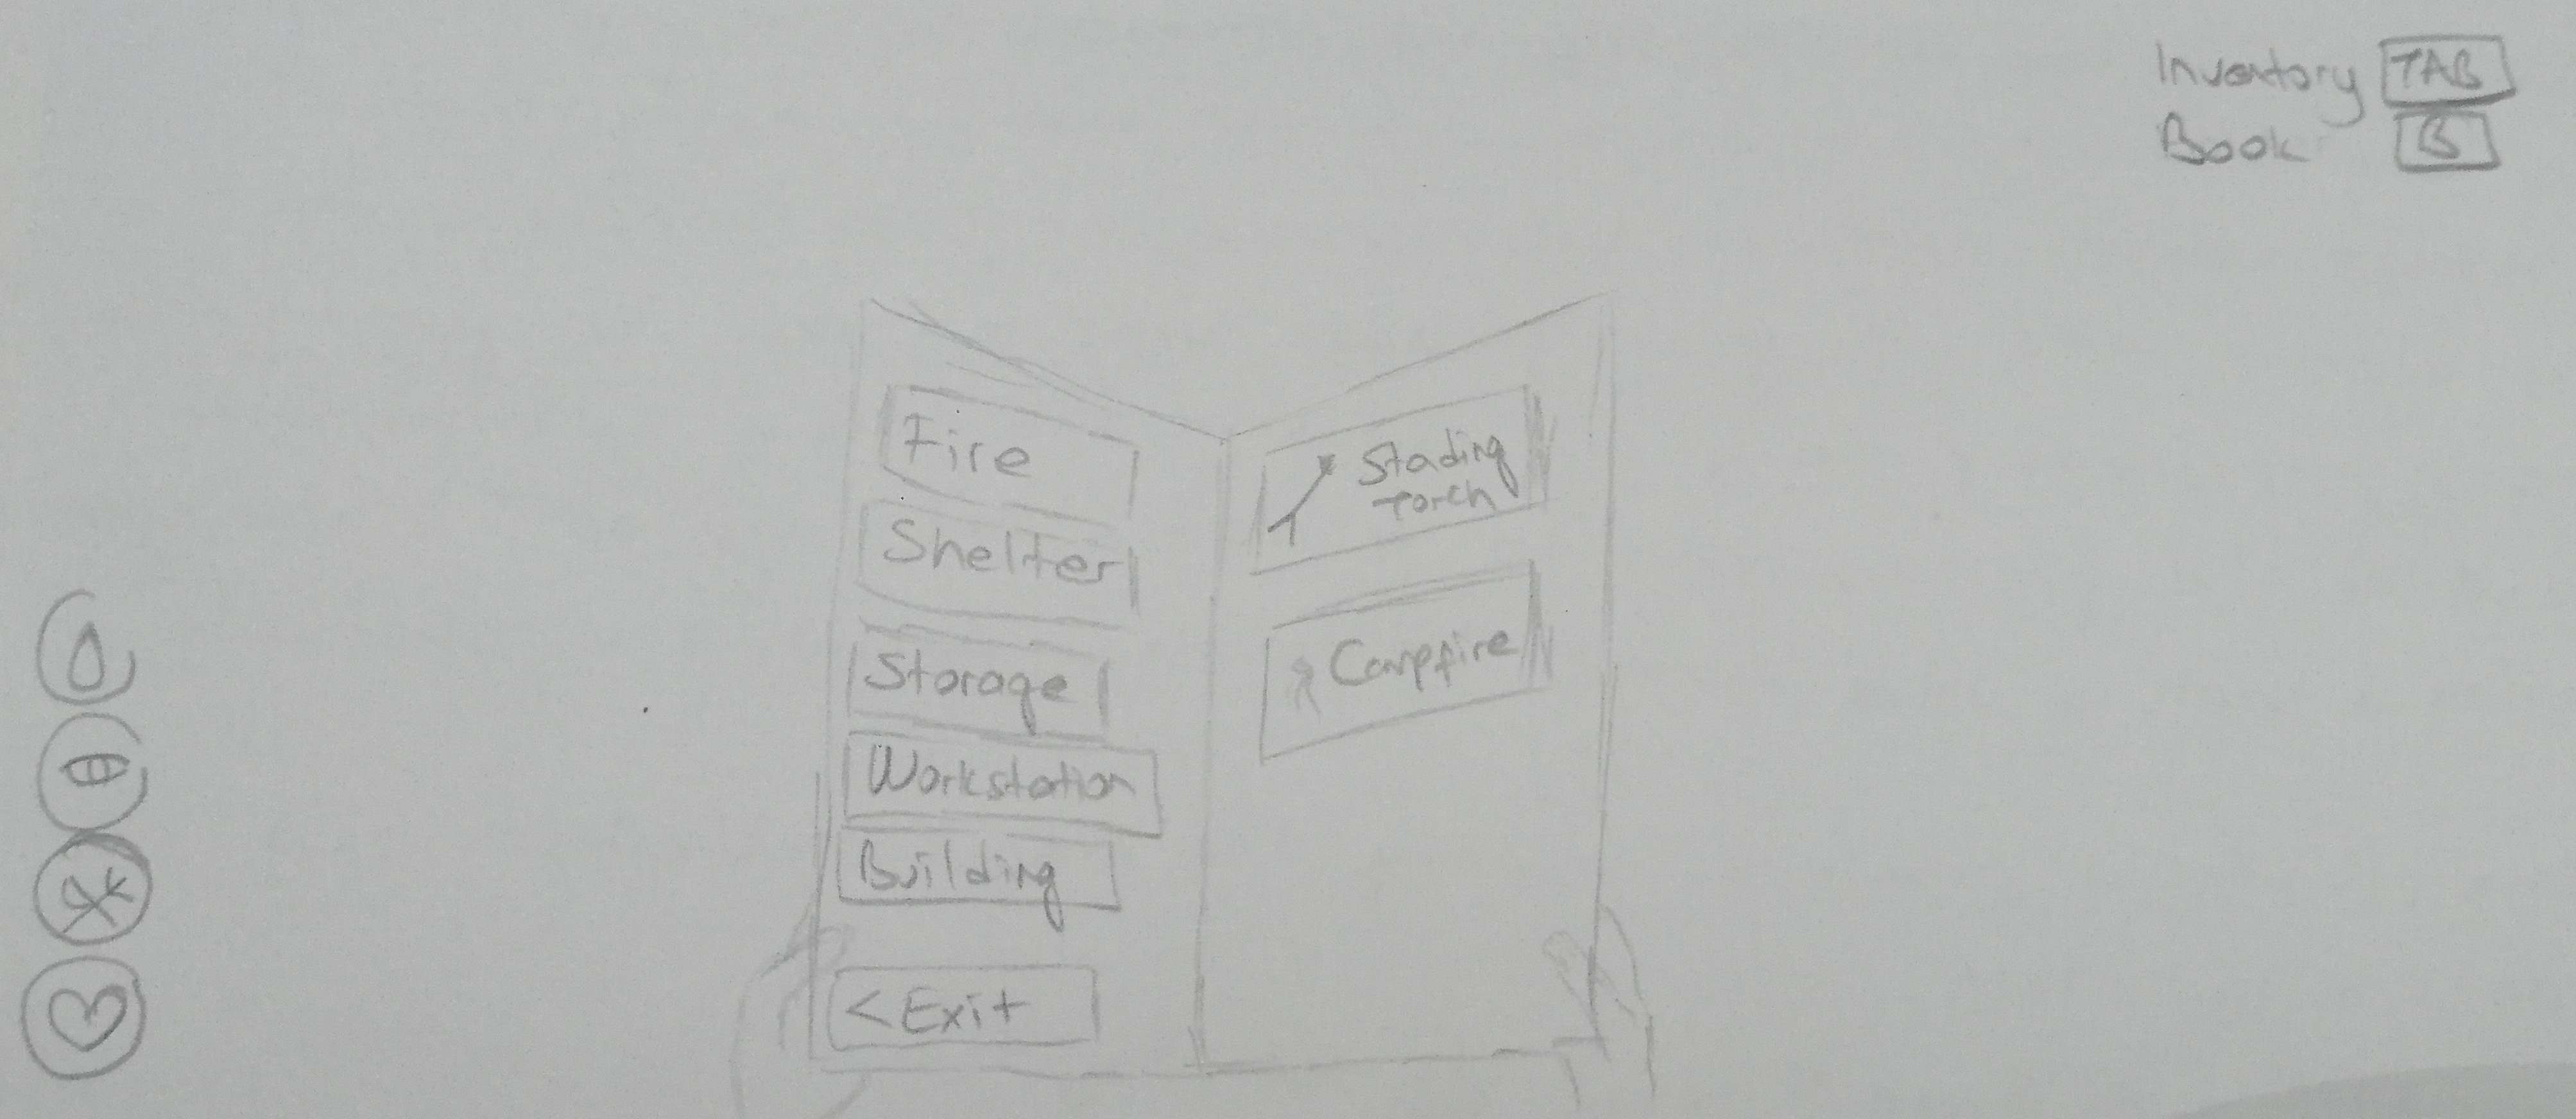 Inventory TAB
Book B
Fire
Shelter
Storage
Workstation
Building
< Exit
Stading
Torch
Campfire